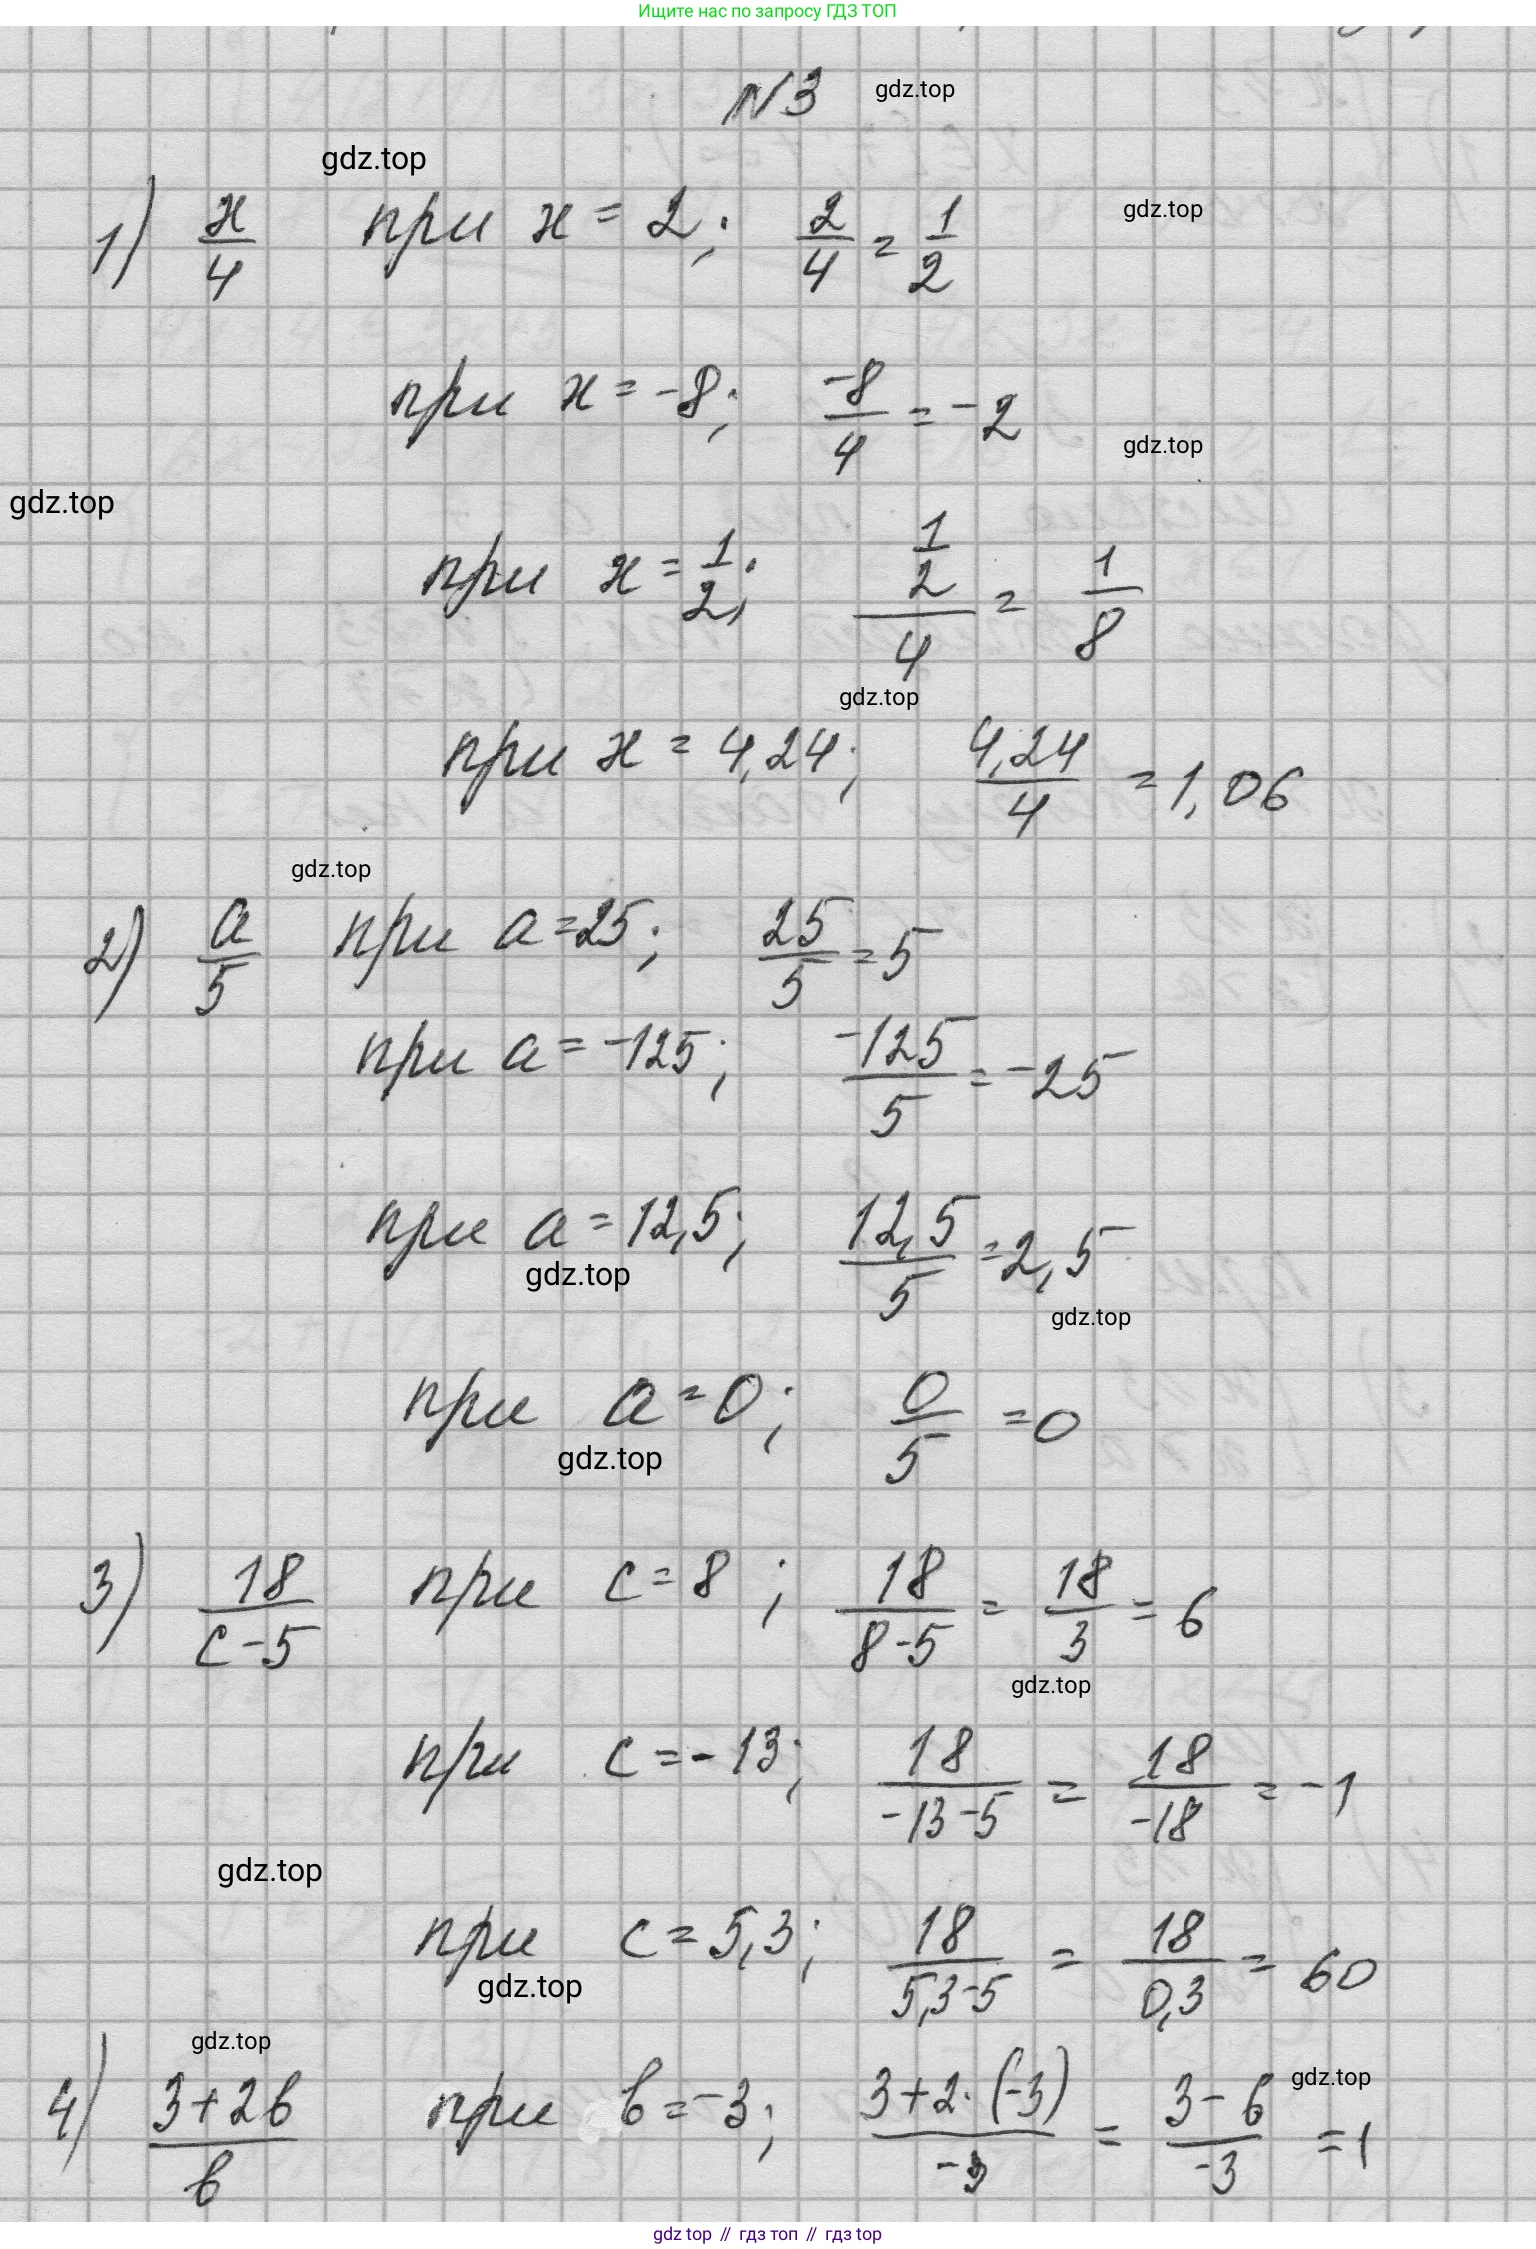 Ищите нас по запросу ГДЗ ТОП
N3 gdz.top
gdz.top
1) x/4 при x = 2; 2/4 = 1/2 gdz.top
при x = -8; -8/4 = -2
gdz.top
gdz.top
при x = 1/2; (1/2)/4 = 1/8
gdz.top
при x = 4,24; 4,24/4 = 1,06
gdz.top
2) a/5 при a = 25; 25/5 = 5
при a = -125; -125/5 = -25
при a = 12,5; 12,5/5 = 2,5
gdz.top
gdz.top
при a = 0; 0/5 = 0
gdz.top
3) 18/(c-5) при c = 8; 18/(8-5) = 18/3 = 6
gdz.top
при c = -13; 18/(-13-5) = 18/(-18) = -1
gdz.top
при c = 5,3; 18/(5,3-5) = 18/0,3 = 60
gdz.top
gdz.top
4) (3+2b)/b при b = -3; (3+2·(-3))/(-3) = (3-6)/(-3) = 1 gdz.top
gdz top // гдз топ // гдз top